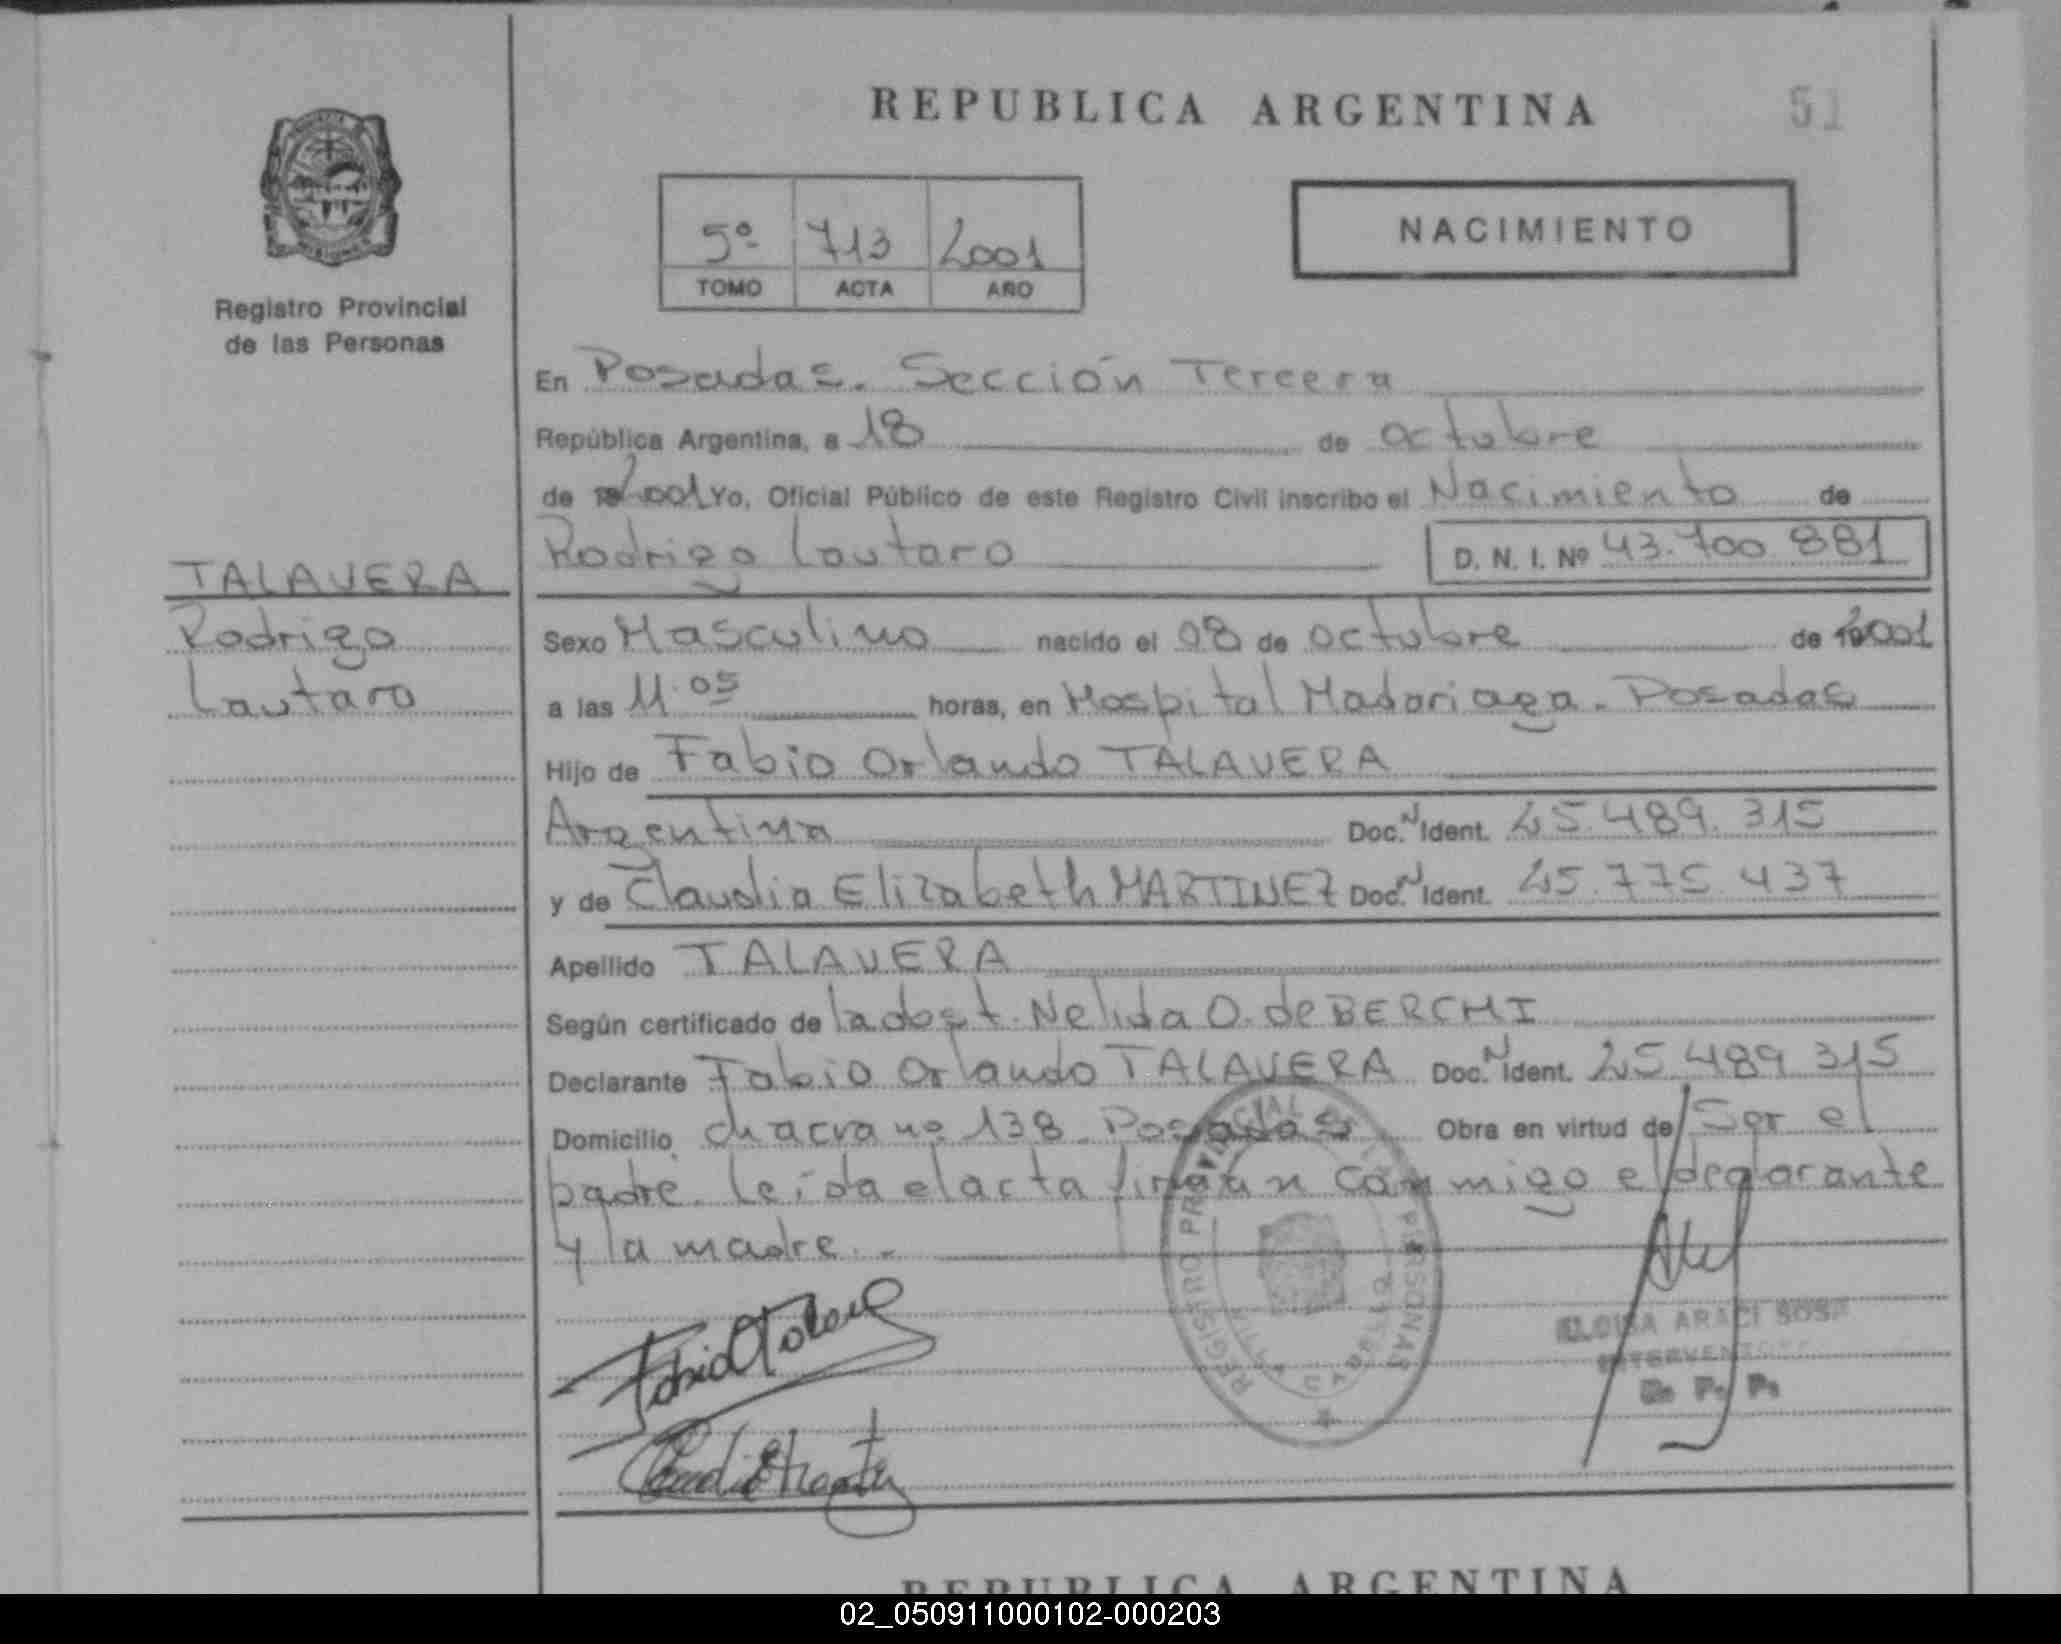 REPUBLICA ARGENTINA
51
5º 713 2001
TOMO ACTA AÑO
NACIMIENTO
Registro Provincial
de las Personas
En Posadas. Sección Tercera
República Argentina, a 18 de octubre
de 2001 Yo, Oficial Público de este Registro Civil inscribo el Nacimiento de
Rodrigo Lautaro D. N. I. Nº 43.700.881
TALAVERA
Rodrigo
Lautaro
Sexo Masculino nacido el 08 de octubre de 2001
a las 11.05 horas, en Hospital Madariaga. Posadas
Hijo de Fabio Orlando TALAVERA
Argentina Doc. N Ident. 25.489.315
y de Claudia Elizabeth MARTINEZ Doc. N Ident. 25.775.437
Apellido TALAVERA
Según certificado de la obst. Nelida O. de BERCHI
Declarante Fabio Orlando TALAVERA Doc. N Ident. 25.489.315
Domicilio chacra nº 138. Posadas Obra en virtud de Ser el
padre. Leída el acta firman conmigo el declarante
y la madre.-
REGISTRO PROVINCIAL DE LAS PERSONAS
ELOISA ARACI SOSA
R. P. P.
REPUBLICA ARGENTINA
02_050911000102-000203